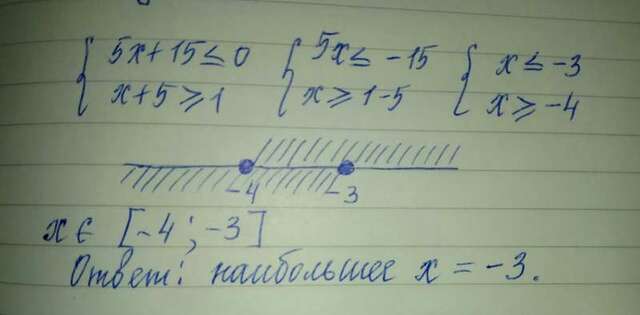 { 5x+15≤0 { 5x≤-15 { x≤-3
x+5≥1 x≥1-5 x≥-4
-4 -3
x ∈ [-4; -3]
Ответ: наибольшее x = -3.